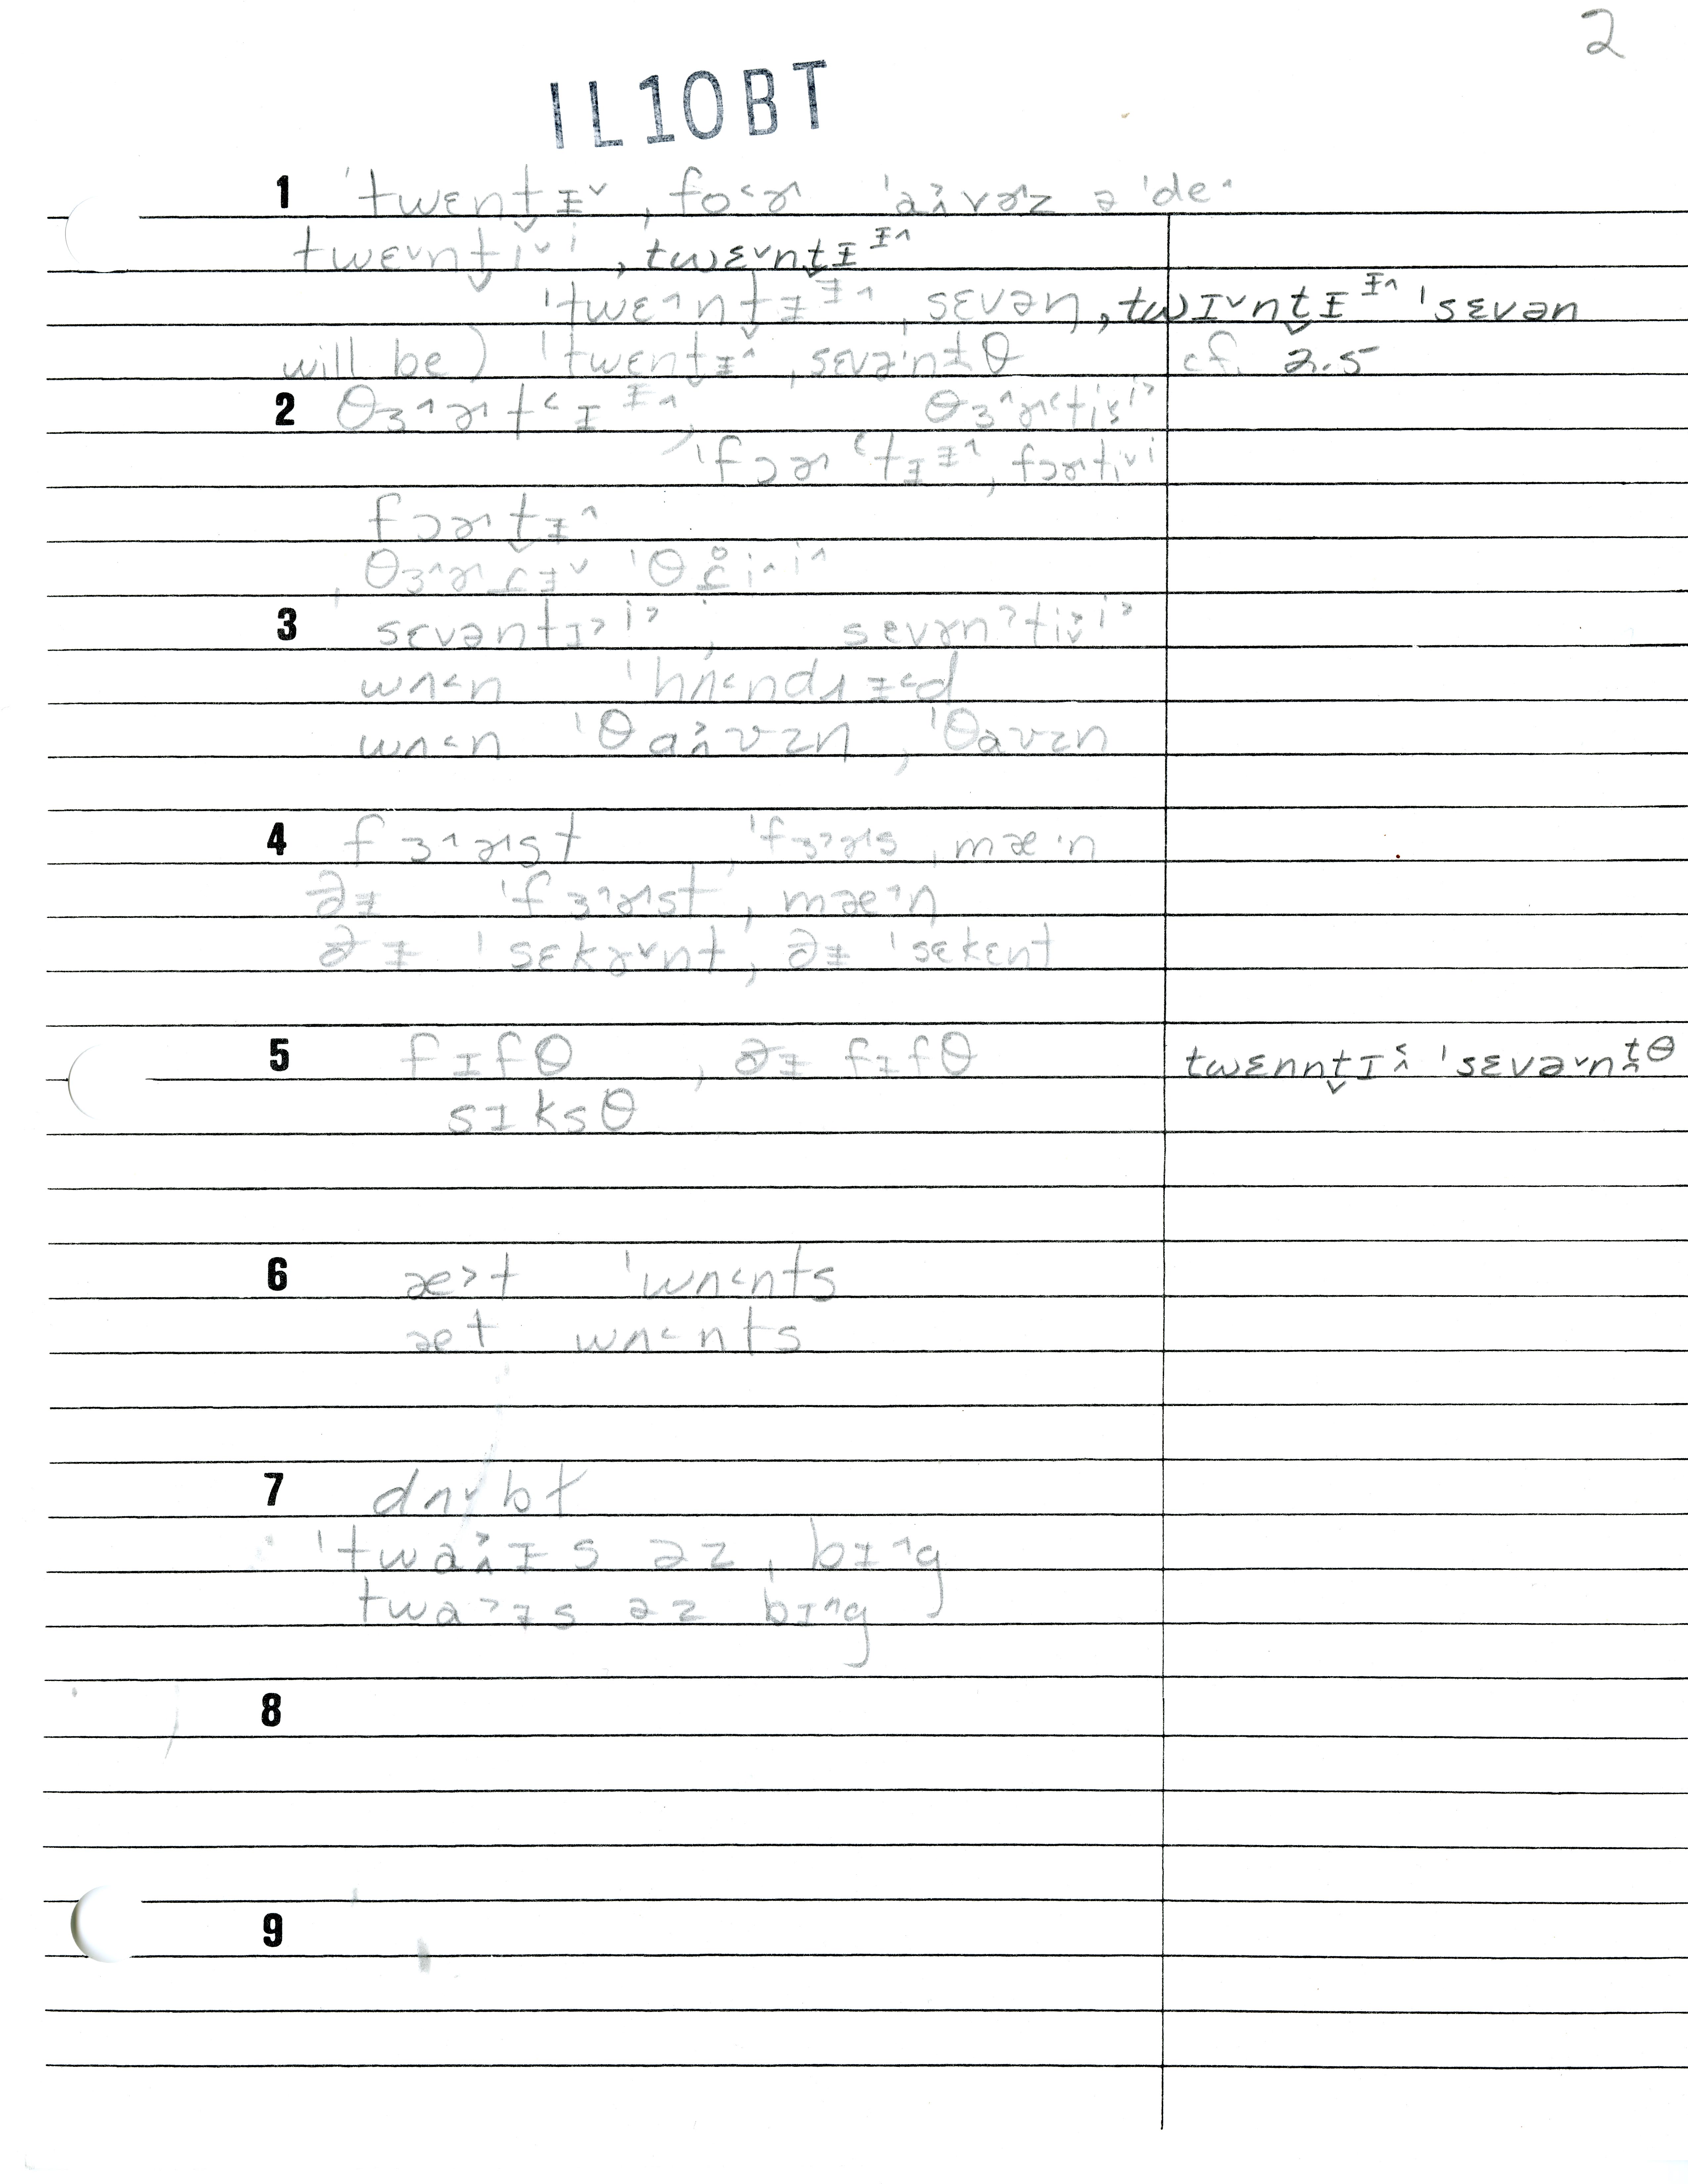 2
IL10BT
1 ˈtwɛnt̬ɪ˅ ˌfo˂ɚ ˈaʌ˃vɚz ə ˈde˄
twɛ˅nt̬ɪ˅ⁱ , twɛ˅nt̬ɪᶦ˄
ˈtwɛ˄nt̬ɪᶦ˄ ˌsɛvən , twɪ˅nt̬ɪᶦ˄ ˈsɛvən
will be) ˈtwɛnt̬ɪ˄ ˌsɛvəntθ cf. 2.5
2 θɜ˄ɚt˂ɪᶦ˄ , θɜ˄ɚ˂ti˅ⁱ˃
ˈfɔɚ˂tɪᶦ˄ , fɔɚti˅ⁱ
fɔɚt̬ɪ˄
ˌθɜ˄ɚɾɪ˅ ˈθɾ̥i˄ⁱ˄
3 sɛvəntɪ˃ⁱ˃ , sɛvɚnˀti˅ⁱ˃
wʌ˂n ˈhʌ˂ndɹɪ˂d
wʌ˂n ˈθaʌ˃vzn , ˈθavzn
4 fɜ˄ɚst , ˈfɜ˃ɚs ˌmæ˄n
ðɪ ˈfɜ˄ɚst ˌmæ˄n
ðɪ ˈsɛkə˅nt , ðɪ ˈsɛkɛnt
5 fɪfθ , ðɪ fɪfθ twɛnnt̬ɪ˄ ˈsɛvə˅nᵗθ
sɪksθ
6 æ˃t ˈwʌ˂nts
æt wʌ˂nts
7 dʌ˅bt
ˈtwaʌ˃ɪs əz ˌbɪ˄g
twa˃ɪs əz bɪ˄g
8
9